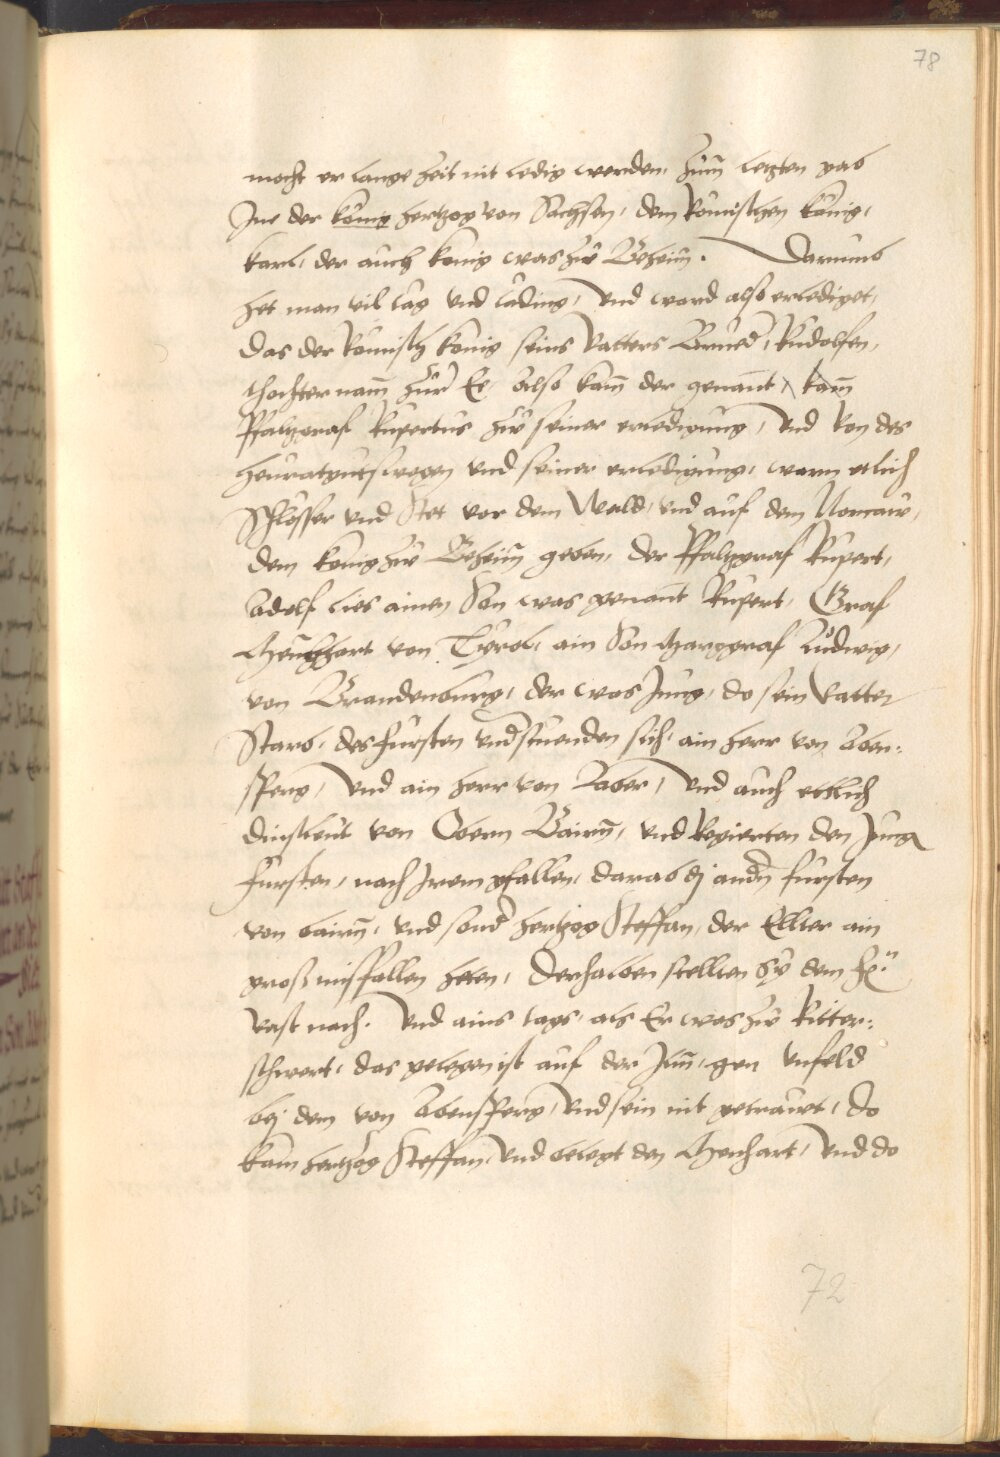 78
mocht er lange Zeit nit ledig werden, Zum letzten gab
Ine der konig hertzog von Sachsen, dem Römischen König,
karl, der auch konig was zů Behem. Darumb
het man vil tag vnd tading, vnd ward also erlediget,
das der Römisch konig seins Vatters Brued, Rudolfen,
thochter nam zůr Ee, Also kam der genant, kam
Pfaltzgraf Rupertus zů seiner erledigung, Vnd von des
heuratguts wegen vnd seiner erledigung, warn etlich
Schlosser vnd Stet vor dem Wald, vnd auf dem Norcaw,
dem konig zů Behem geben, der Pfaltzgraf Rupert,
Adolf lies ainen Son was genant Rupert, Graf
von Tyrol, ain Son Marggraf Ludwig,
von Brandenburg, der was Jung, do sein Vatter
Starb, des fursten vndstuenden sich, ain herr von Aben:
sperg, vnd ain herr von Laber, vnd auch ettlich
dinstleut von Obern Bairn, vnd Regierten den Jung
fursten, nach Irem gfallen, darab dj andn fursten
von bairn, vnd sond hertzog Steffan, der Ellter ain
groß misfallen heten, Derhalben stellten Sy dem
vast nach. Vnd ains tags, als Er was zů Ritter:
schwert, das gelegen ist auf der Ilm, gen Vnfeld
bej dem von Abensperg, vnd sein nit getrawt, do
kam hertzog Steffan, vnd belegt den Menhart, vnd do
72